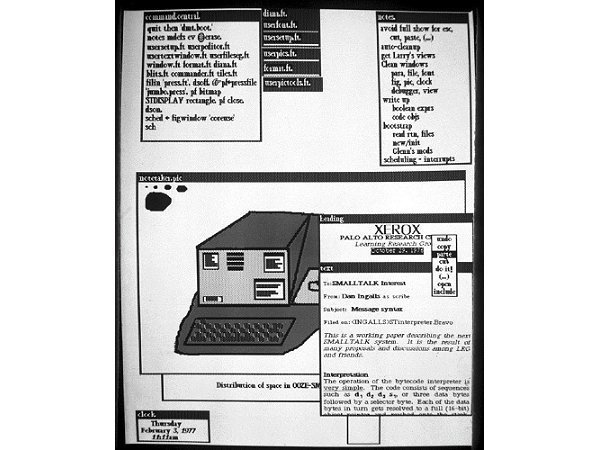 command central.
quit then 'dmt.boot.'
notes mdefs ev @erase.
usersetup.ft userpeditor.ft
usertextwindow.ft userfileseg.ft
window.ft format.ft diana.ft
blits.ft commander.ft tiles.ft
fillin 'press.ft'. dsoff.
'jumbo.press'. pf bitmap
STDISPLAY rectangle. pf close.
dson.
sched + figwindow 'coreuse'
sch
diana.ft.
userfont.ft.
usersetup.ft.
userpics.ft.
format.ft.
userpictools.ft.
notes.
avoid full show for esc,
cut, paste, (...)
auto-cleanup
get Larry's views
Clean windows
para, file, font
fig, pic, clock
debugger, view
write up
boolean exprs
code objs
bootstrap
read rtn, files
new/init
Glenn's mods
scheduling + interrupts
notetaker.pic
heading
XEROX
PALO ALTO RESEARCH
Learning Research Gro
October 19, 197
undo
copy
paste
cut
do it!
(...)
open
include
text
To: SMALLTALK Interest
From: Dan Ingalls as scribe
Subject: Message syntax
Filed on: <INGALLS>STinterpreter.Bravo
This is a working paper describing the next
SMALLTALK system. It is the result of
many proposals and discussions among LRG
and friends.
Interpretation
The operation of the bytecode interpreter is
very simple. The code consists of sequences
such as
or three data bytes
followed by a selector byte. Each of the data
bytes in turn gets resolved to a full (16-bit)
Distribution of space in OOZE-SM
clock
Thursday
February 3, 1977
11:11am